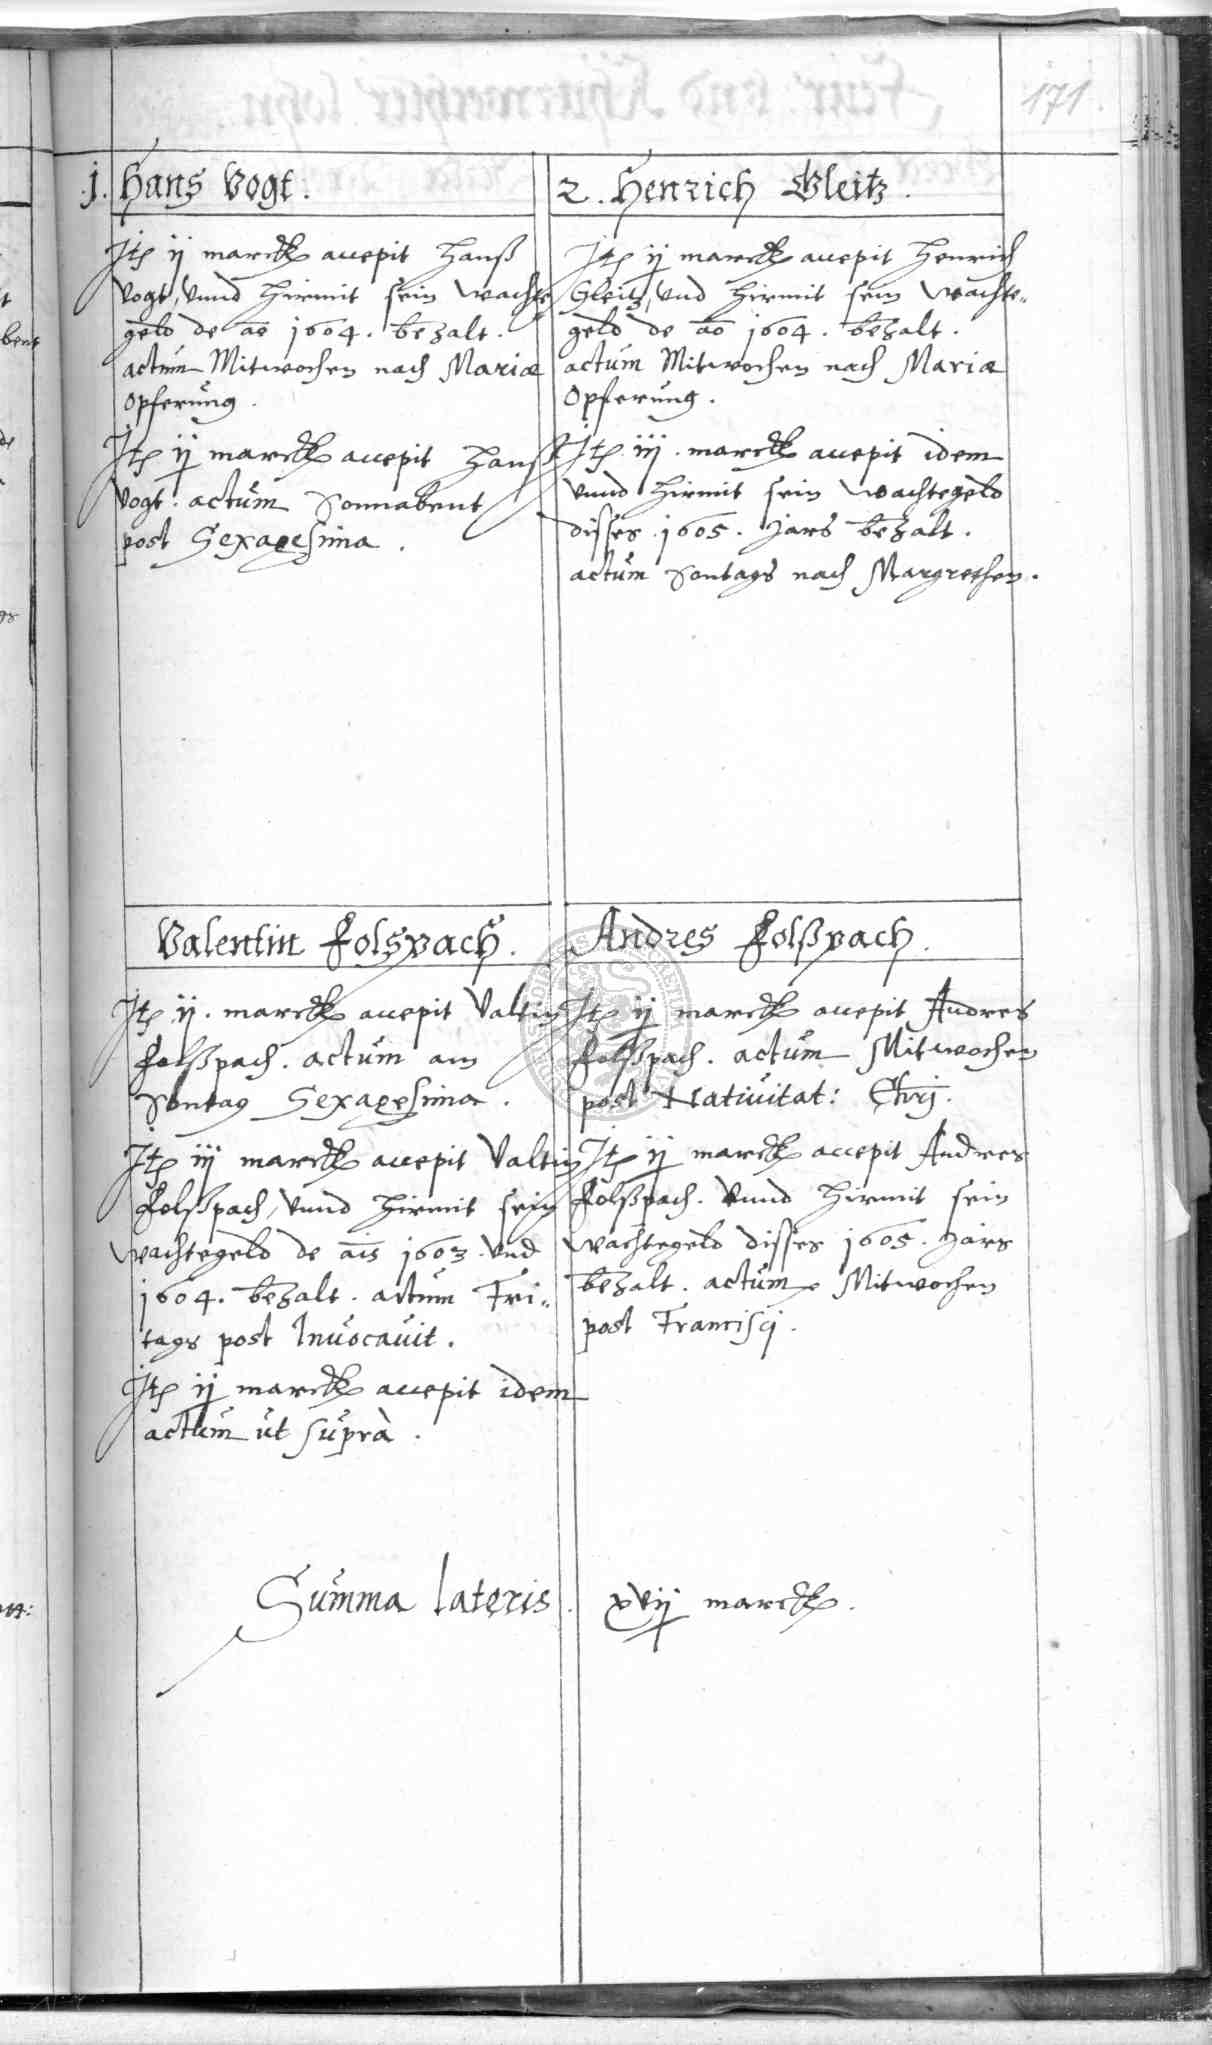 171
j. Hans Vogt.
Itꝭ ij marckꝭ accepit Hanß
Vogt, vnnd hirmit sein wachte
geld de aō 1604. bezalt.
actum Mitwochen nach Mariæ
Opferung.
Itꝭ ij marckꝭ accepit Hanß
Vogt. actum Sonnabent
post Sexagesima.
2. Henrich Gleitz.
Itꝭ ij marckꝭ accepit Henrich
Gleitz, vnd hirmit sein wachte„
geld de aō 1604. bezalt.
actum Mitwochen nach Mariæ
Opferung.
Itꝭ iij. marckꝭ accepit idem
vnnd hirmit sein wachtegeld
disses 1605. Jars bezalt.
actum Sontags nach Margrethen.
Valentin Folspach.
Itꝭ ij. marckꝭ accepit Valtin
Folßpach. actum am
Sontag Sexagesima.
Itꝭ iij marckꝭ accepit Valtin
Folßpach, vnnd hirmit sein
wachtegeld de āis 1603. vnd
1604. bezalt. actum Fri„
tags post Invocavit.
Itꝭ ij marckꝭ accepit idem
actum ut suprà.
Andres Folßpach.
Itꝭ ij marckꝭ accepit Andres
Folßpach. actum Mitwochen
post Nativitat: Chrj.
Itꝭ ij marckꝭ accepit Andres
Folßpach. vnnd hirmit sein
wachtegeld disses 1605. Jars
bezalt. actum Mitwochen
post Francisci.
Summa lateris. xvij marckꝭ.